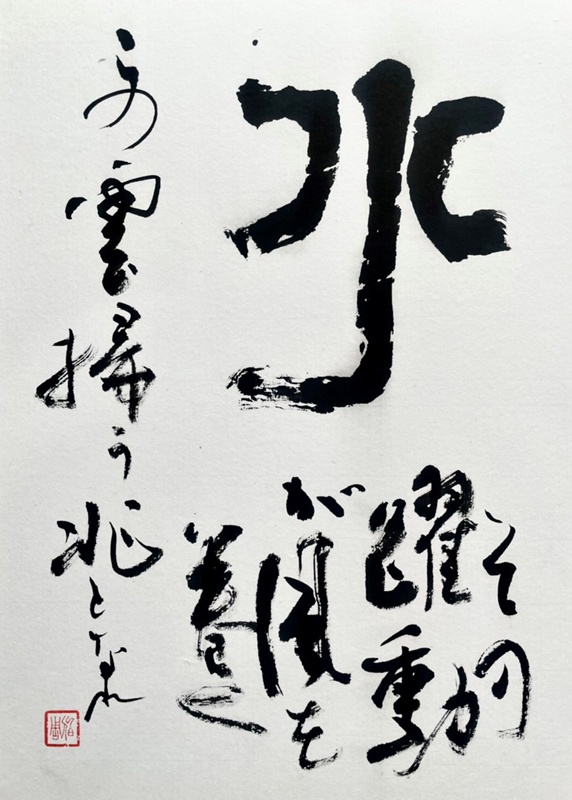 水
その
躍動
が風を
巻く
この雲掃う兆となれ